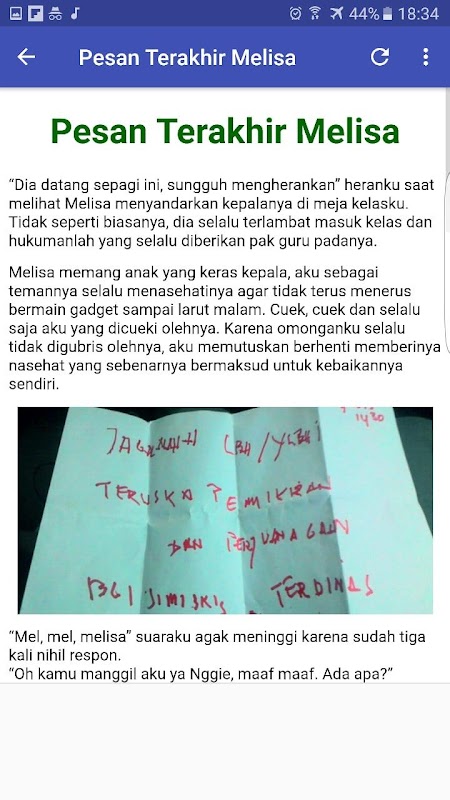 44% 18:34
Pesan Terakhir Melisa
Pesan Terakhir Melisa
“Dia datang sepagi ini, sungguh mengherankan” heranku saat
melihat Melisa menyandarkan kepalanya di meja kelasku.
Tidak seperti biasanya, dia selalu terlambat masuk kelas dan
hukumanlah yang selalu diberikan pak guru padanya.
Melisa memang anak yang keras kepala, aku sebagai
temannya selalu menasehatinya agar tidak terus menerus
bermain gadget sampai larut malam. Cuek, cuek dan selalu
saja aku yang dicueki olehnya. Karena omonganku selalu
tidak digubris olehnya, aku memutuskan berhenti memberinya
nasehat yang sebenarnya bermaksud untuk kebaikannya
sendiri.
1430
TERUSKA PEMIKIRAN
DAN PERJUANAGAN
BGI SIMISKIS TERDINAS
“Mel, mel, melisa” suaraku agak meninggi karena sudah tiga
kali nihil respon.
“Oh kamu manggil aku ya Nggie, maaf maaf. Ada apa?”